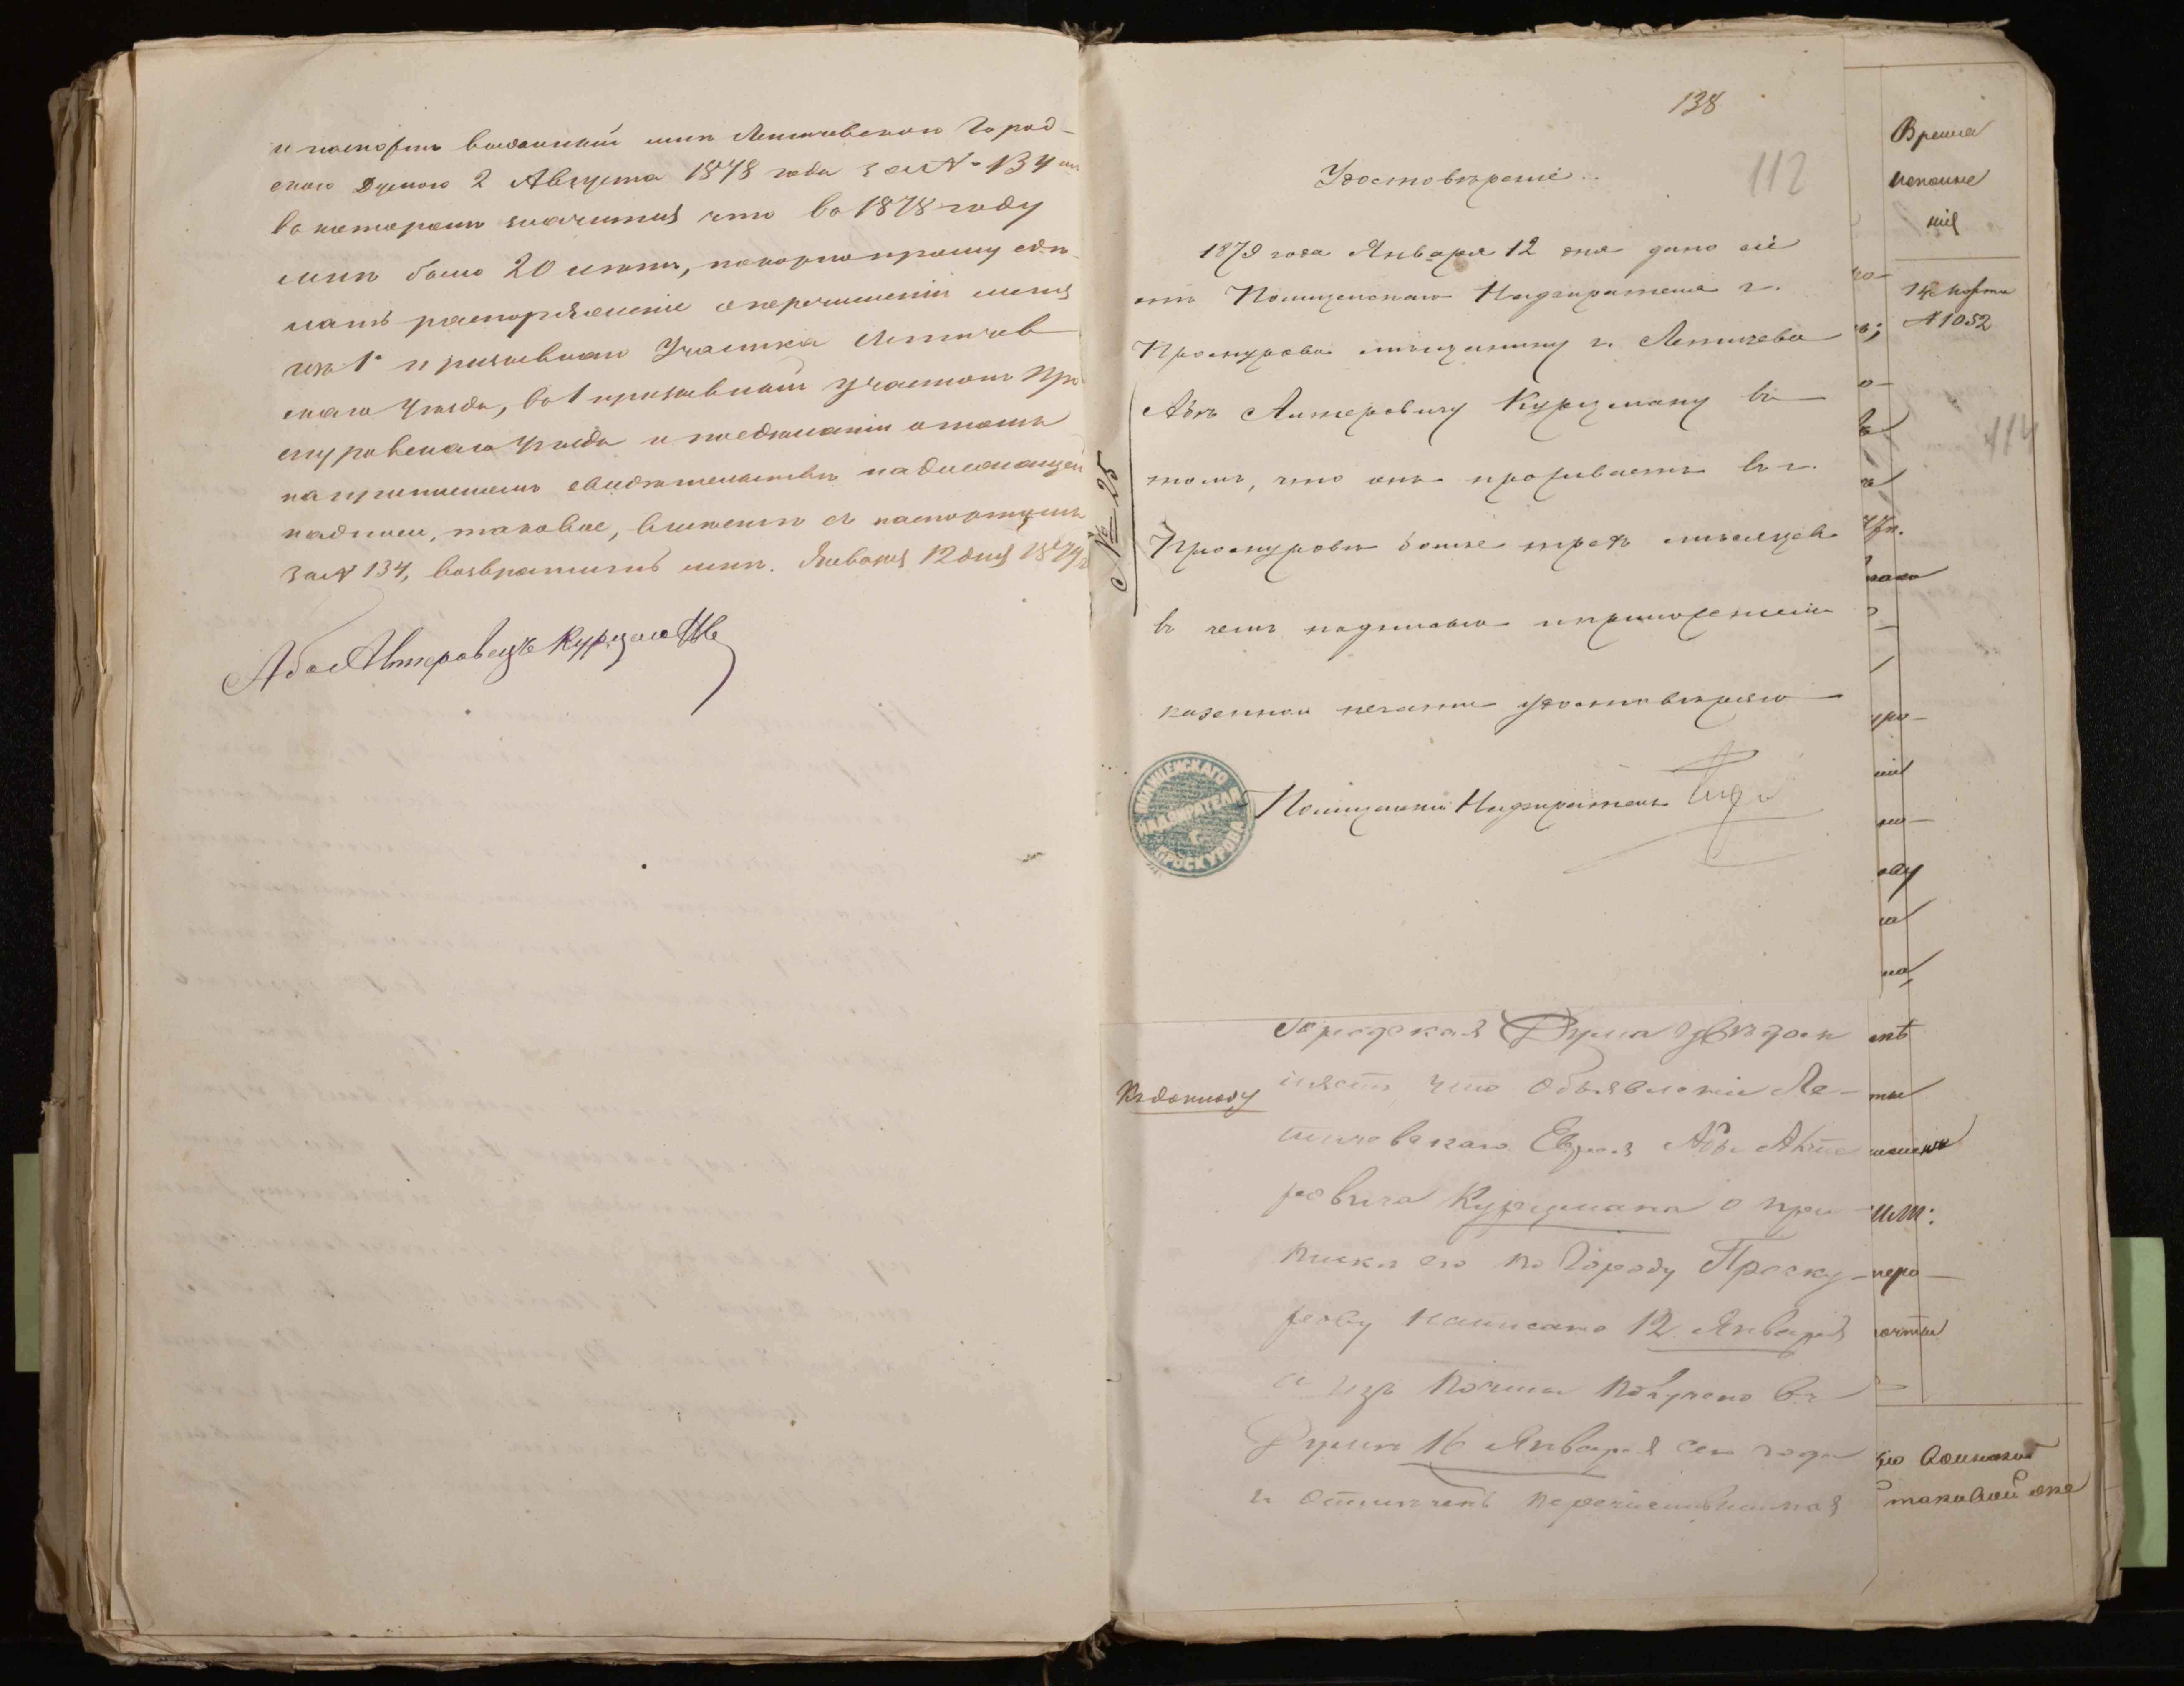 и паспортъ выданный мнѣ Летичевскою Город-
скою Думою 2 Августа 1878 года за № 134
въ которомъ значится что въ 1878 году
мнѣ было 20 лѣтъ, покорно прошу сдѣ-
лать распоряженіе о перечисленіи меня
изъ 1 призывнаго Участка Летичев
скаго уѣзда, въ 1 призывный участокъ Про
скуровскаго уѣзда и по сдѣланіи о томъ
на припискомъ свидѣтельствѣ надлежащей
надписи, таковое, вмѣстѣ съ паспортомъ
за № 134, возвратить мнѣ. Января 12 дня 1879 г
Аба Алтеровичъ Курцманъ
138
112
Удостовѣреніе
1879 года Января 12 дня дано сіе
отъ Полицейскаго Надзирателя г.
Проскурова мѣщанину г. Летичева
Абѣ Алтеровичу Курцману въ
томъ, что онъ проживаетъ въ г.
Проскуровѣ болѣе трехъ мѣсяцевъ
въ чемъ подписью и приложеніемъ
казенной печати удостовѣряю
№ 25
Полицейскій Надзиратель
ПОЛИЦЕЙСКАГО
НАДЗИРАТЕЛЯ
Г.
ПРОСКУРОВА
Къ докладу
Городская Дума увѣдом
ляетъ, что объявленіе Ле-
тичевскаго Еврея Абы Алте
ровича Курцмана о при
пискѣ его по Городу Проску-
рову написано 12 Января
а изъ почты получено въ
Думѣ 16 Января сего года
и
Время
исполне
нія
14 Марта
№ 1052
114
ову
таковой